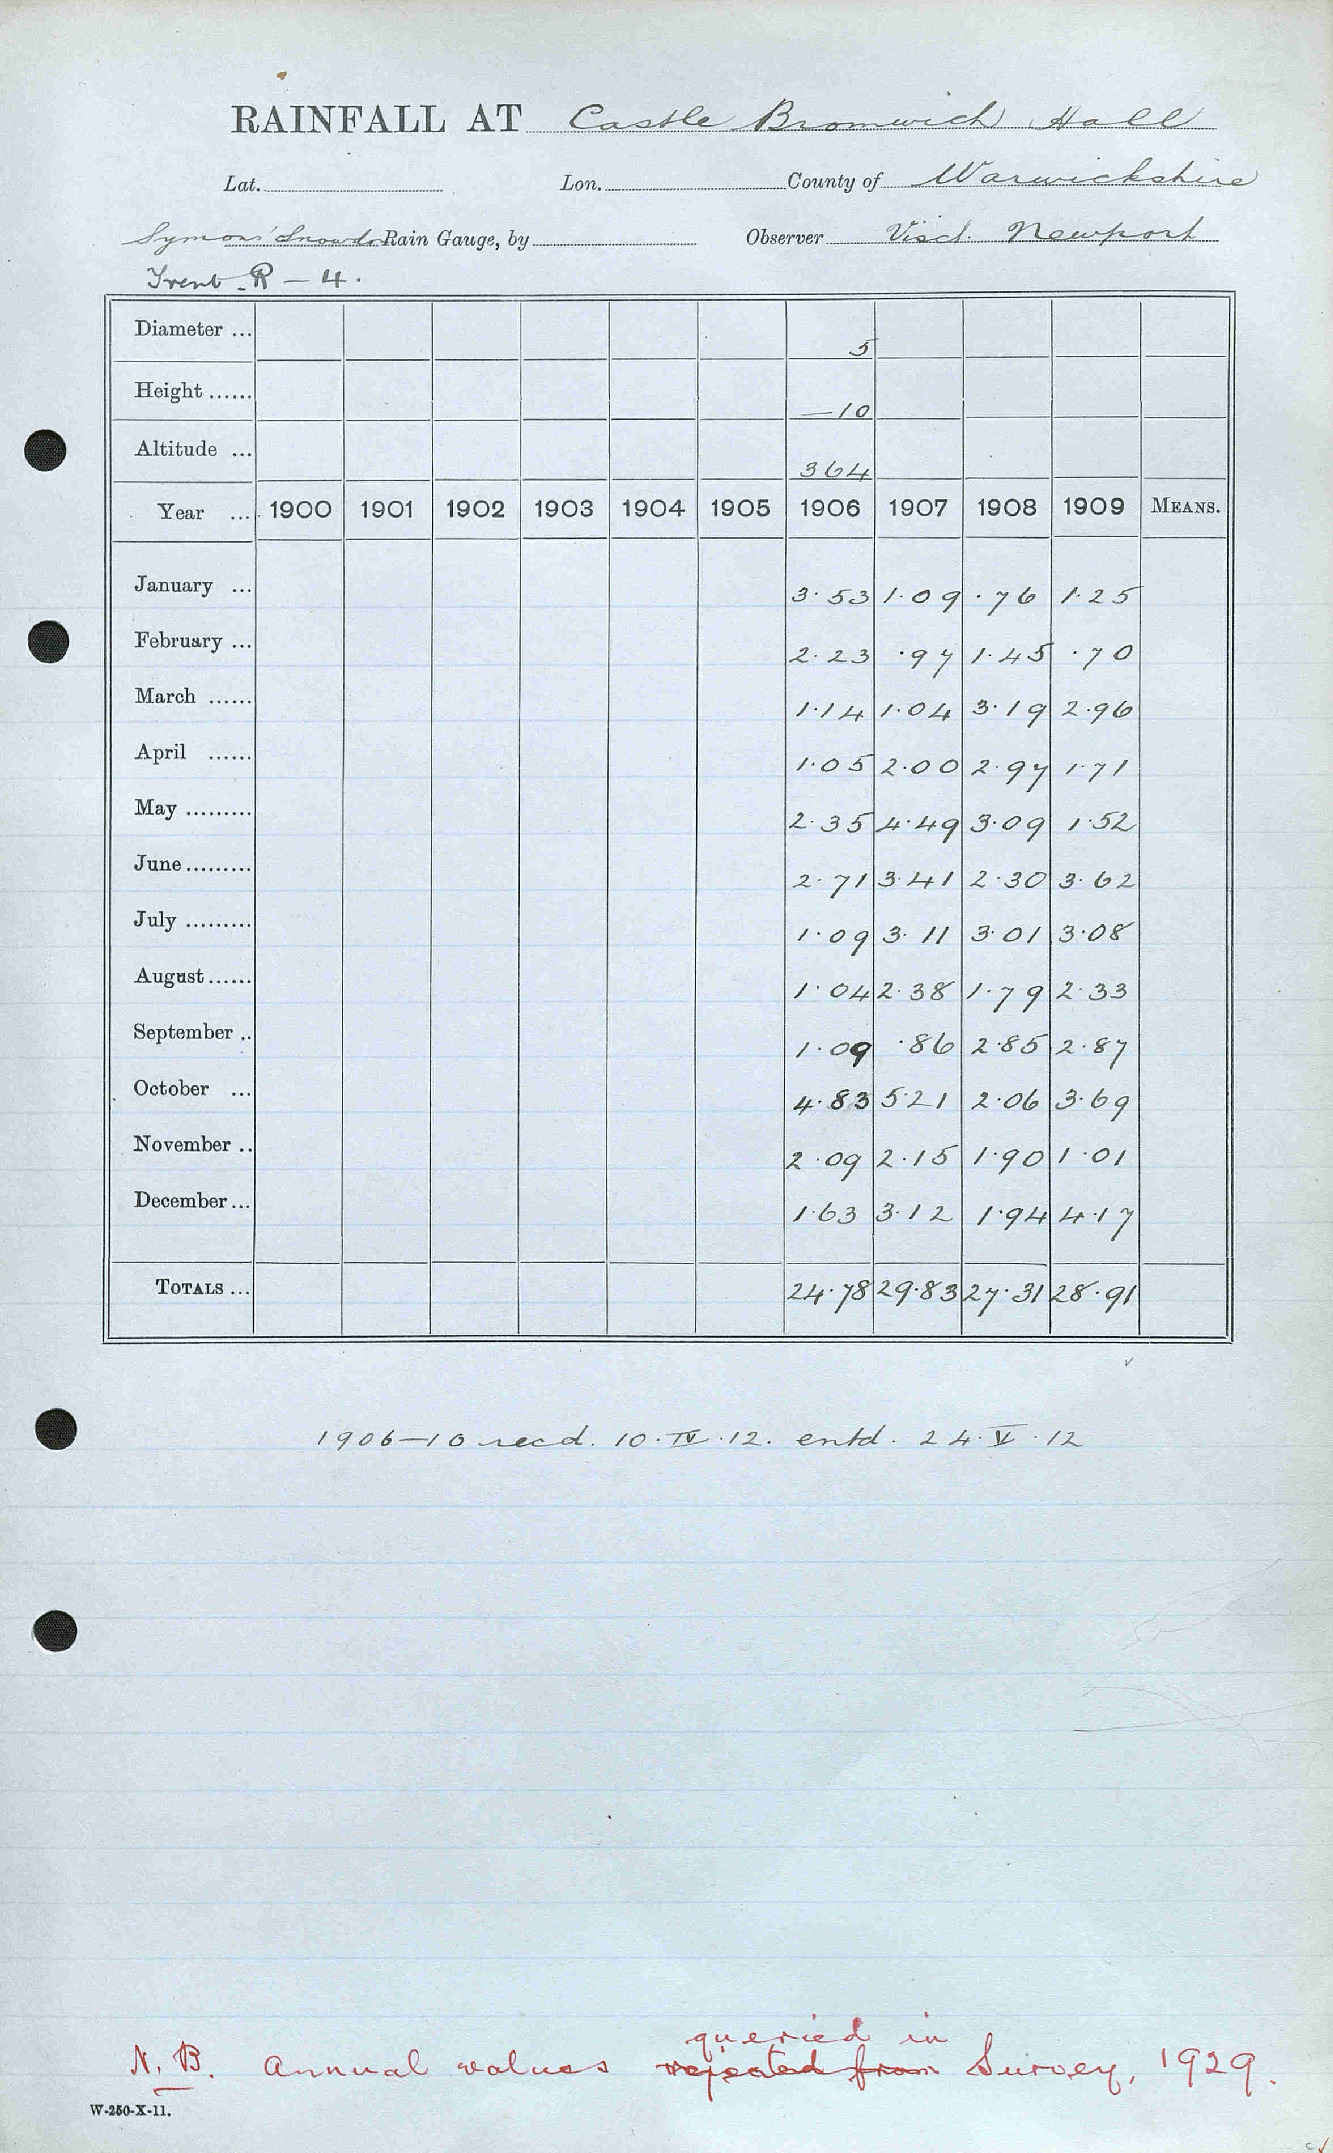 RAINFALL AT Castle Bromwich Hall
Lat. Lon. County of Warwickshire
Symons' Snowdon Rain Gauge, by Observer Visct. Newport
Trent R - 4.
Diameter ... 5
Height ...... —10
Altitude ... 364
Year ... 1900 1901 1902 1903 1904 1905 1906 1907 1908 1909 MEANS.
January ... 3.53 1.09 .76 1.25
February ... 2.23 .97 1.45 .70
March ...... 1.14 1.04 3.19 2.96
April ...... 1.05 2.00 2.97 1.71
May ......... 2.35 4.49 3.09 1.52
June ......... 2.71 3.41 2.30 3.62
July ......... 1.09 3.11 3.01 3.08
August ...... 1.04 2.38 1.79 2.33
September .. 1.09 .86 2.85 2.87
October ... 4.83 5.21 2.06 3.69
November .. 2.09 2.15 1.90 1.01
December ... 1.63 3.12 1.94 4.17
TOTALS ... 24.78 29.83 27.31 28.91
1906—10 recd. 10.IV.12. entd. 24.V.12
queried in
N.B. Annual values rejected from Survey, 1929.
W-250-X-11.